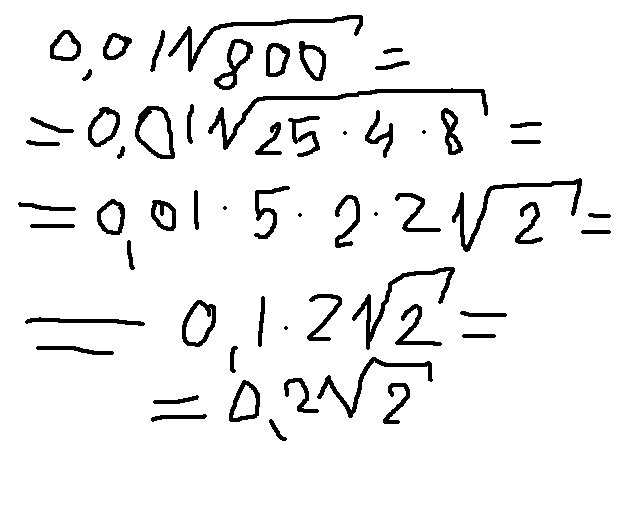 0,01√800 =
= 0,01√25·4·8 =
= 0,01·5·2·2√2 =
= 0,1·2√2 =
= 0,2√2